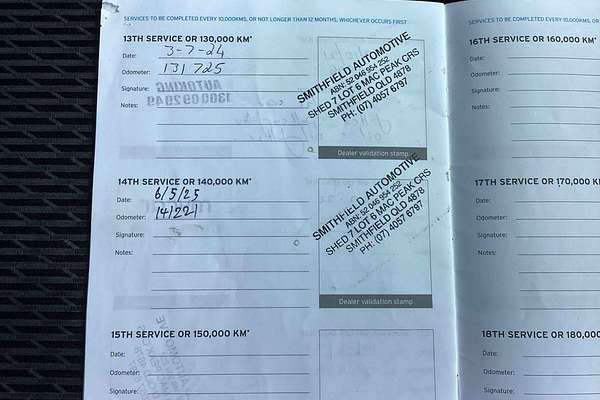 SERVICES TO BE COMPLETED EVERY 10,000KMS, OR NOT LONGER THAN 12 MONTHS, WHICHEVER OCCURS FIRST
13TH SERVICE OR 130,000 KM*
Date: 3-7-24
Odometer: 131725
Signature:
Notes:
AUTOKING
1300 092 949
SMITHFIELD AUTOMOTIVE
ABN: 52 046 954 252
SHED 7 LOT 6 MAC PEAK CRS
SMITHFIELD QLD 4878
PH: (07) 4057 6797
Dealer validation stamp
14TH SERVICE OR 140,000 KM*
Date: 6/5/25
Odometer: 141221
Signature:
Notes:
SMITHFIELD AUTOMOTIVE
ABN: 52 046 954 252
SHED 7 LOT 6 MAC PEAK CRS
SMITHFIELD QLD 4878
PH: (07) 4057 6797
Dealer validation stamp
15TH SERVICE OR 150,000 KM*
Date:
Odometer:
Signature:
SERVICES TO BE COMPLETED EVERY 10,000KMS, OR NO
16TH SERVICE OR 160,000 KM*
Date:
Odometer:
Signature:
Notes:
17TH SERVICE OR 170,000 KM*
Date:
Odometer:
Signature:
Notes:
18TH SERVICE OR 180,000
Date:
Odometer:
Signature: